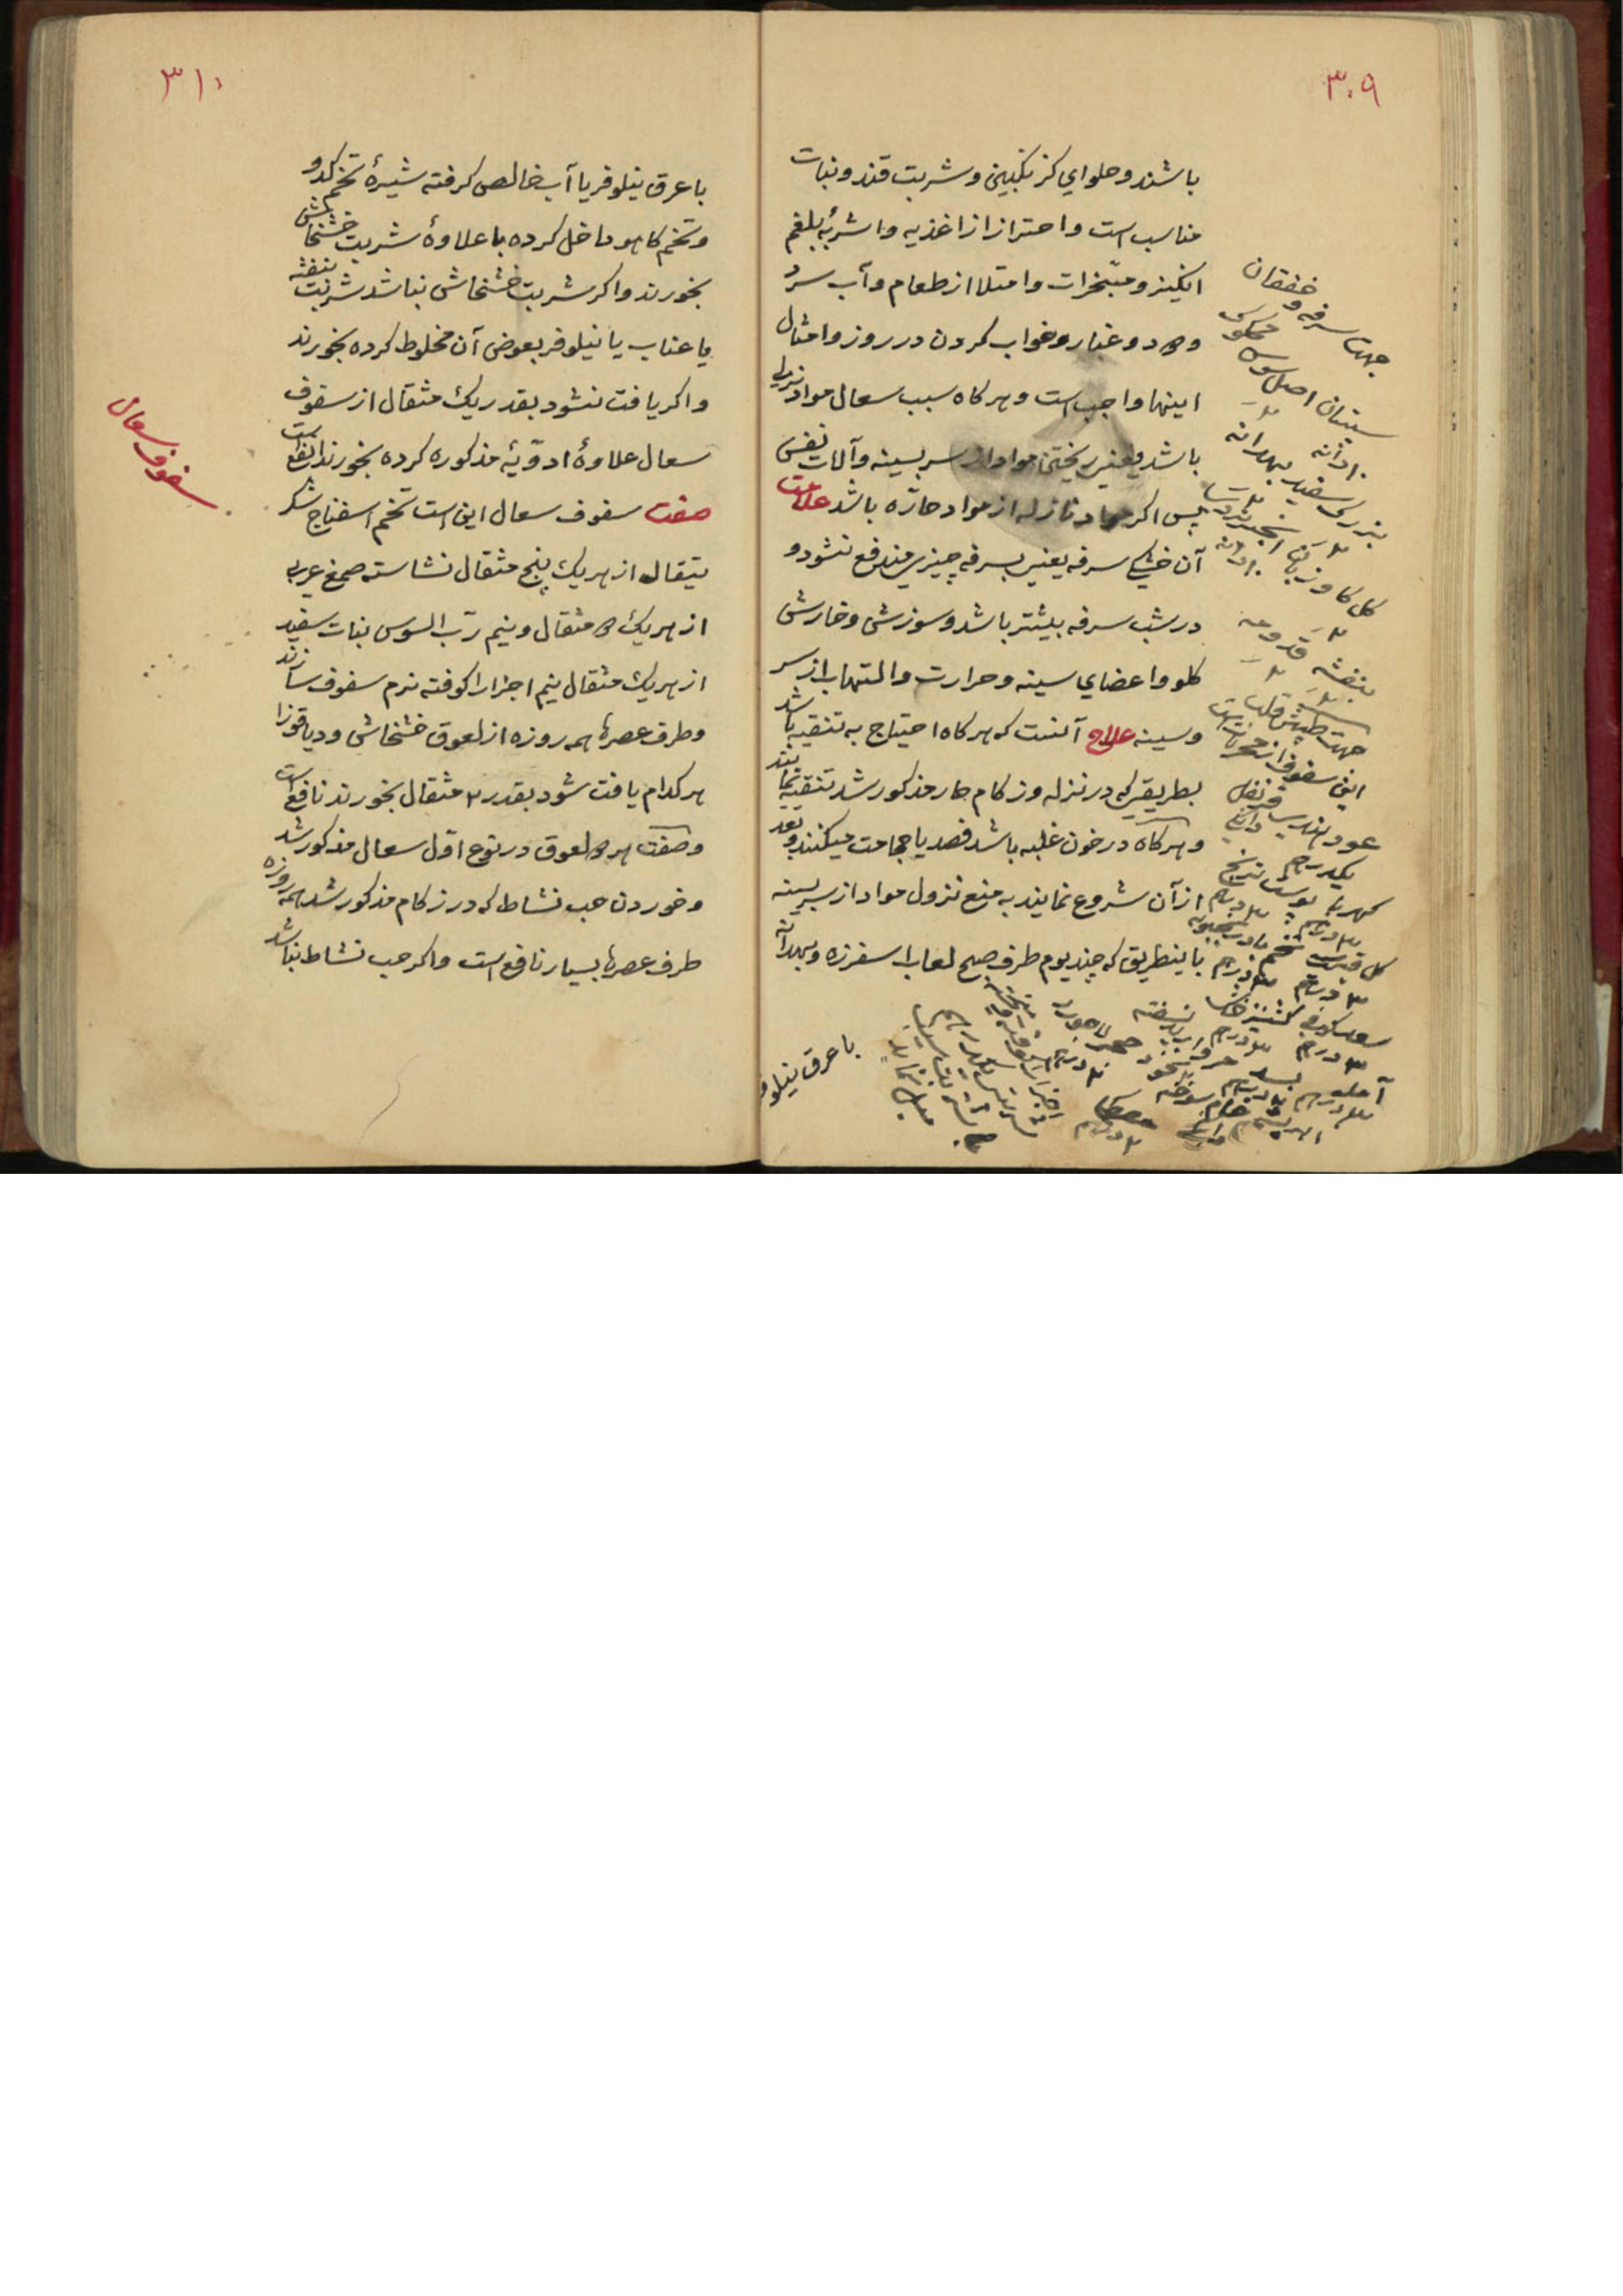 ۳۰۹
باشند و حلوای کزنکبین و شربت قند و نبات
مناسب است و احتراز از اغذیه و اشربهٔ بلغم
انکیز و مبخرات و امتلا از طعام و آب سرد
و دود و غبار و خواب کردن در روز و امثال
اینها واجب است و هرکاه سبب سعال مواد نزلی
باشد یعنی ریختن مواد از سر بسینه و آلات نفس
پس اکر مواد نازله از مواد حارّه باشد علامت
آن خشکی سرفه یعنی بسرفه چیزی مندفع نشود و
در شب سرفه بیشتر باشد و سوزش و خارش
کلو و اعضای سینه و حرارت و التهاب از سر
و سینه علاج آنست که هرکاه احتیاج به تنقیه باشد
بطریقی که در نزله و زکام حار مذکور شد تنقیه نمایند
و هرکاه در خون غلبه باشد فصد یا حجامت میکنند و بعد
از آن شروع نمایند به منع نزول مواد از سر بسینه
باینطریق که چند یوم طرف صبح لعاب اسفرزه و بهدانه
با عرق نیلوفر
جهت سرفه و خفقان
سپستان اصل سوس محکوک
۱۰دانه
بزرک سفید بهدانه
کل کاوزبان انجیر زرد
۱۰دانه
بنفشه
جهت طپش قلب
این سفوف از مجربات است
عود هندی قرنفل
یکدرم
کهربا پوست ترنج
۳ درم
تخم بادرنجبویه
۳ درم
سعد کوفی کشنیز خشک
۳ درم
آمله
بسد
ابریشم خام
اجزا را کوفته و بیخته
۳۱۰
با عرق نیلوفر یا آب خالص کرفته شیرهٔ تخم کدو
و تخم کاهو داخل کرده با علاوهٔ شربت خشخاش
بخورند و اکر شربت خشخاش نباشد شربت بنفشه
یا عناب یا نیلوفر بعوض آن مخلوط کرده بخورند
و اکر یافت نشود بقدر یک مثقال از سفوف
سعال علاوهٔ ادویهٔ مذکوره کرده بخورند نافع است
صفت سفوف سعال این است تخم اسفناج شکر
تیقال از هریک پنج مثقال نشاسته صمغ عربی
از هریک دو مثقال و نیم ربّ السوس نبات سفید
از هریک مثقال نیم اجزا را کوفته نرم سفوف سازند
و طرف عصرها همه روزه از لعوق خشخاش و دیاقوزا
هرکدام یافت شود بقدر ۲ مثقال بخورند نافع است
و صفت هر دو لعوق در نوع اول سعال مذکور شد
و خوردن حب نشاط که در زکام مذکور شد همه روزه
طرف عصرها بسیار نافع است و اکر حب نشاط نباشد
سفوف سعال